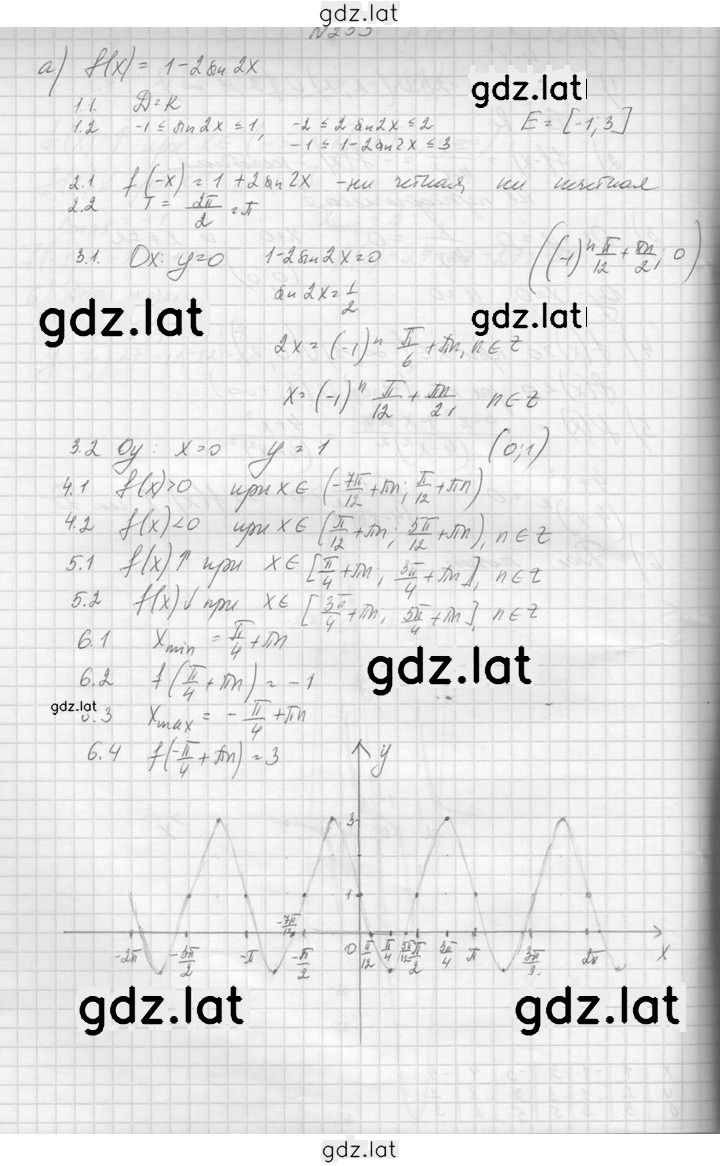 gdz.lat
а) f(x) = 1-2sin2x
gdz.lat
1.1. D=R
1.2 -1 ≤ sin2x ≤ 1, -2 ≤ 2sin2x ≤ 2 E = [-1; 3]
-1 ≤ 1-2sin2x ≤ 3
2.1 f(-x) = 1 + 2sin2x - ни четная, ни нечетная
2.2 T = 2π/2 = π
3.1. Ox: y=0 1-2sin2x=0 ((-1)^n π/12 + πn/2; 0)
sin2x = 1/2
gdz.lat
gdz.lat
2x = (-1)^n π/6 + πn, n∈Z
x = (-1)^n π/12 + πn/2, n∈Z
3.2 Oy: x=0 y = 1 (0; 1)
4.1 f(x)>0 при x∈ (-7π/12 + πn; π/12 + πn)
4.2 f(x)<0 при x∈ (π/12 + πn; 5π/12 + πn), n∈Z
5.1 f(x)↑ при x∈ [π/4 + πn; 3π/4 + πn], n∈Z
5.2 f(x)↓ при x∈ [3π/4 + πn; 5π/4 + πn], n∈Z
6.1 x min = π/4 + πn
gdz.lat
6.2 f(π/4 + πn) = -1
gdz.lat
6.3 x max = -π/4 + πn
6.4 f(-π/4 + πn) = 3
y
3
1
-7π/12
-2π -3π/2 -π -π/2 0 π/12 π/4 5π/12 π/2 3π/4 π 3π/2 2π x
gdz.lat
gdz.lat
gdz.lat